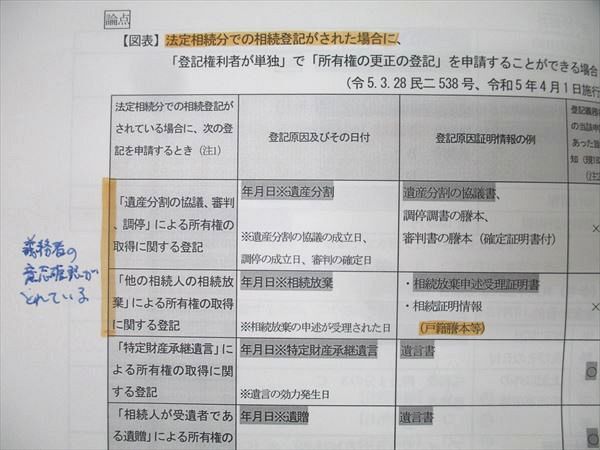 論点
【図表】法定相続分での相続登記がされた場合に、
「登記権利者が単独」で「所有権の更正の登記」を申請することができる場合
(令5.3.28民二538号、令和5年4月1日施行
法定相続分での相続登記が
されている場合に、次の登
記を申請するとき(注1)
登記原因及びその日付
登記原因証明情報の例
登記義務
の当該申
あった旨
知(規1
(注2
「遺産分割の協議、審判
、調停」による所有権の
取得に関する登記
年月日※遺産分割
※遺産分割の協議の成立日、
調停の成立日、審判の確定日
遺産分割の協議書、
調停調書の謄本、
審判書の謄本(確定証明書付)
×
義務者の
意思確認が
とれている
「他の相続人の相続放
棄」による所有権の取得
に関する登記
年月日※相続放棄
※相続放棄の申述が受理された日
・相続放棄申述受理証明書
・相続証明情報
(戸籍謄本等)
×
「特定財産承継遺言」に
よる所有権の取得に関
する登記
年月日※特定財産承継遺言
※遺言の効力発生日
遺言書
○
「相続人が受遺者であ
る遺贈」による所有権の
年月日※遺贈
遺言書
○